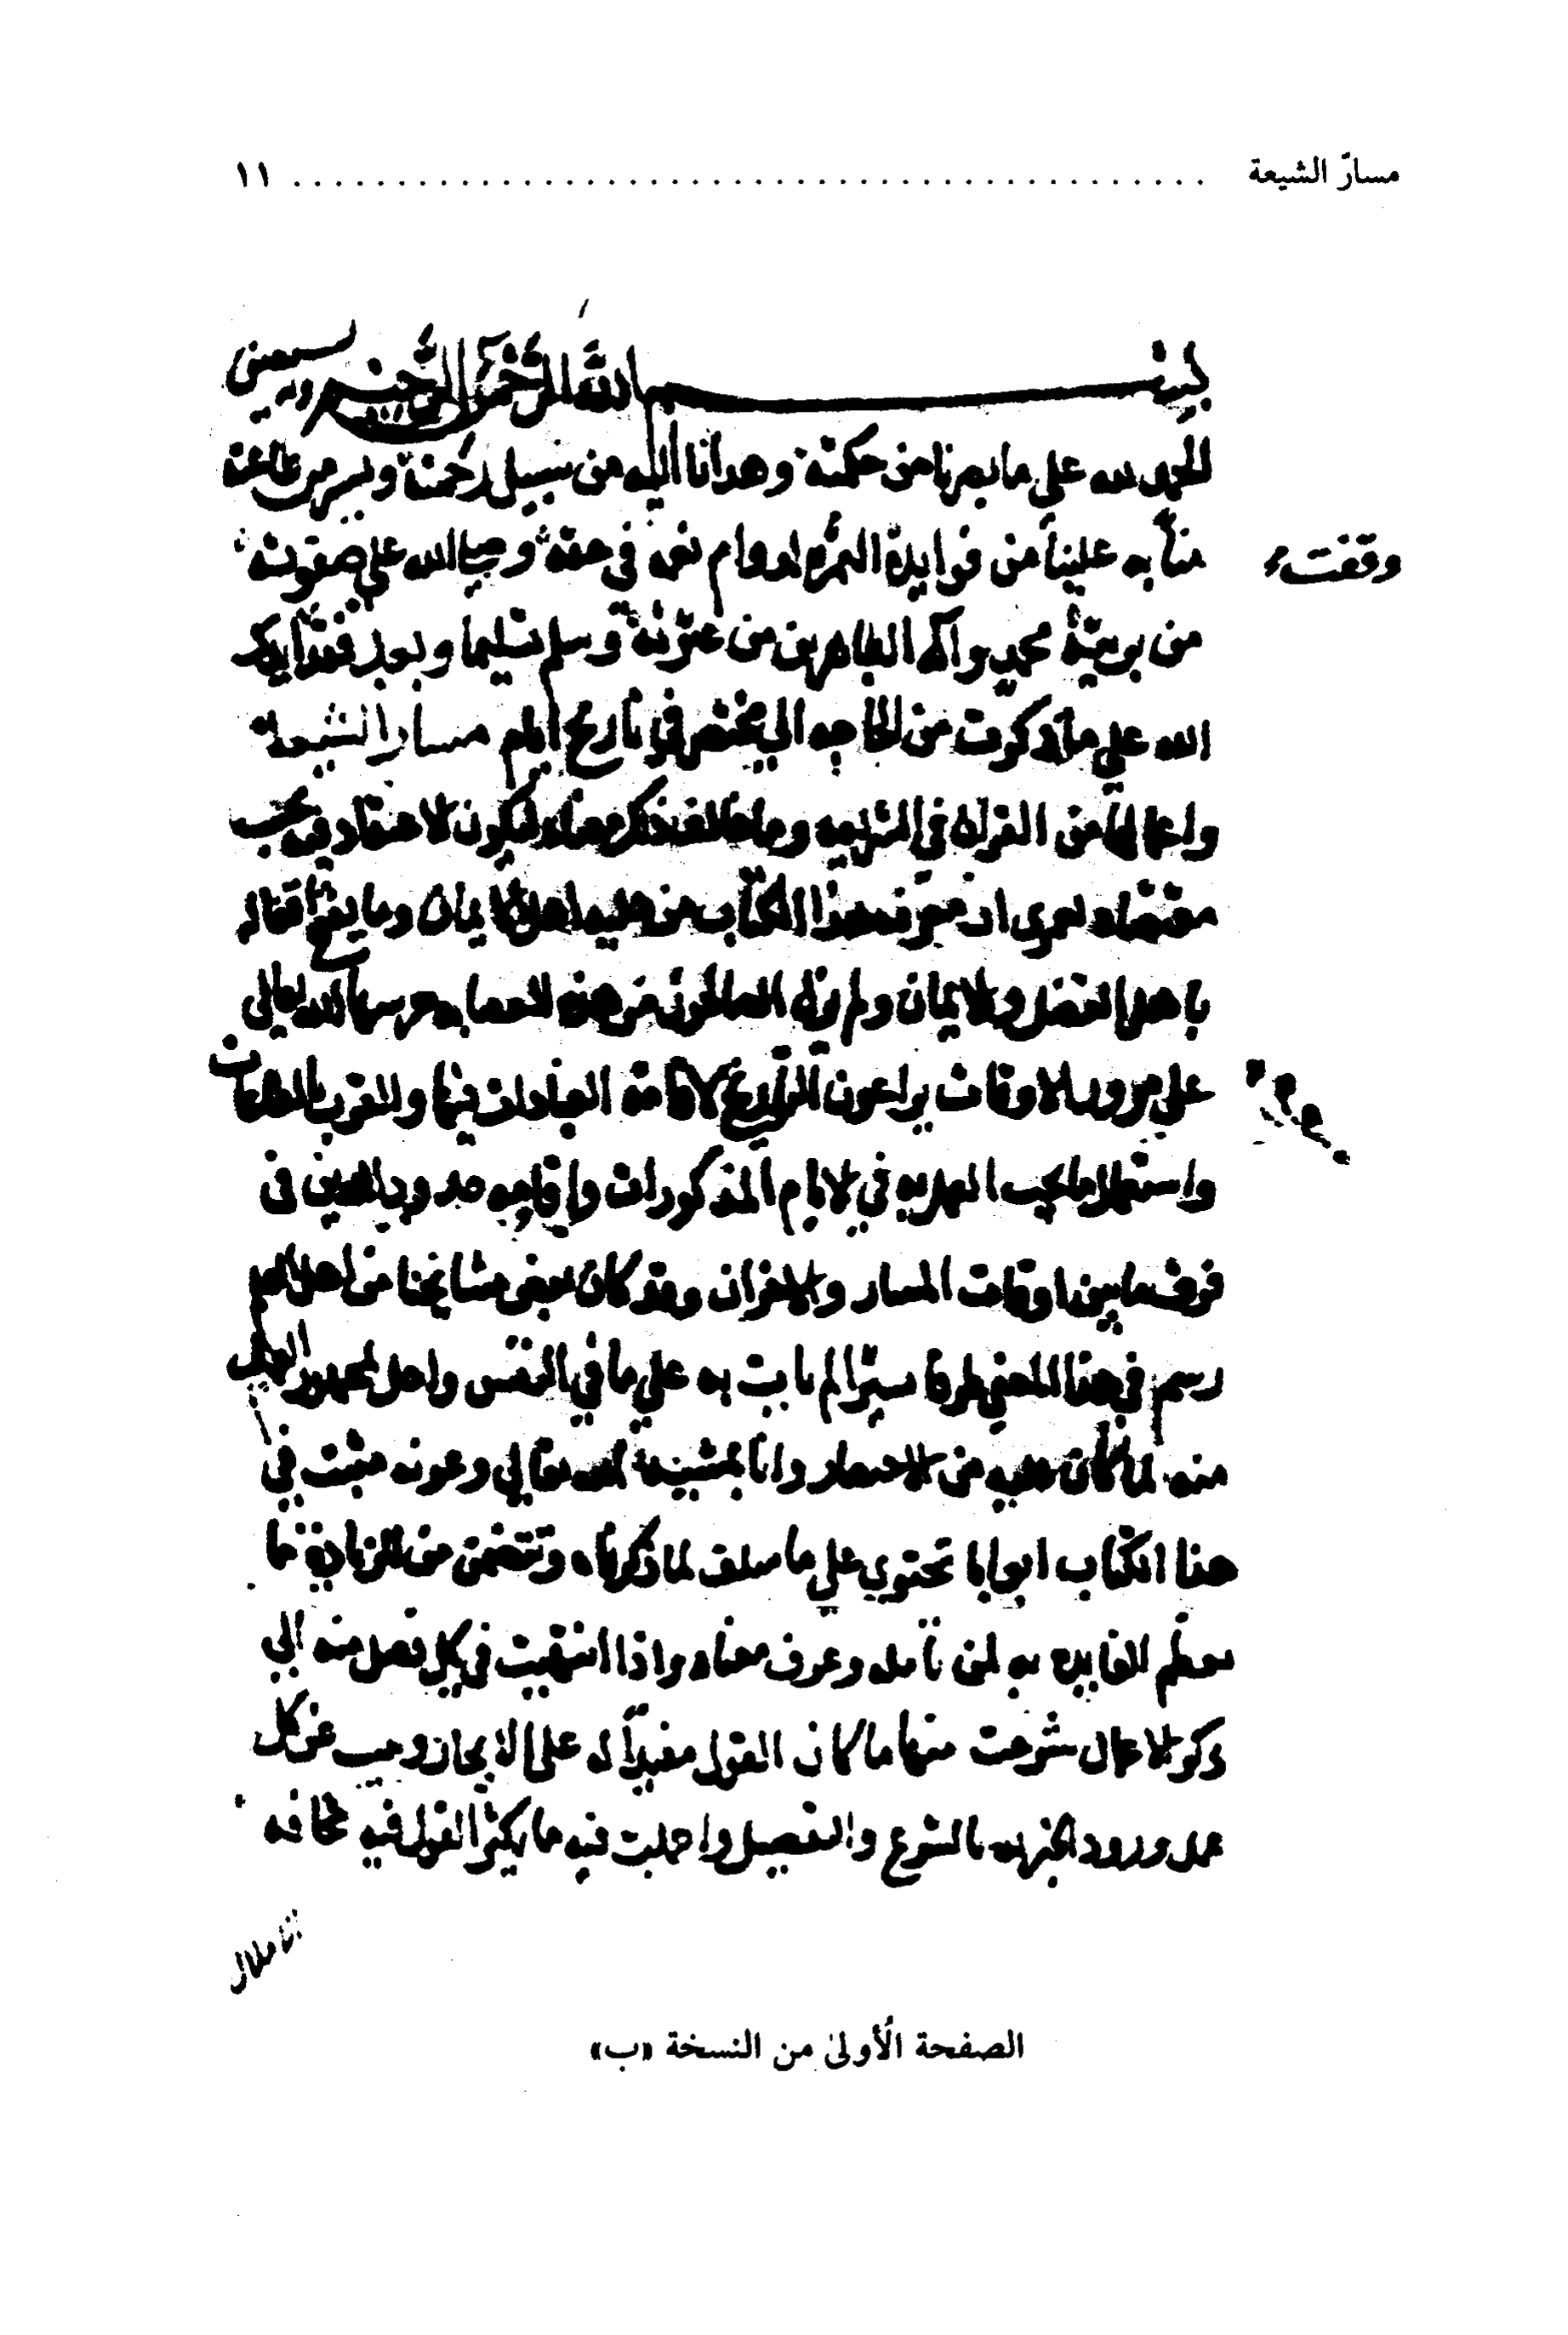 مسارّ الشيعة ........................................ ١١
بسم الله الرحمن الرحيم وبه نستعين
الحمد لله على ما بصرنا من حكمته وهدانا اليه من سبيل رحمته ويسر من طاعته
من به علينا من فوايده وام في حقه وصلي الله علي صفوته
وقفت
من بريته محمد واله الطاهرين من عترته وسلم تسليما وبعد فقد ايدك
الله علي ما ذكرت من الحاجه الي مختصر في تاريخ ايام مسار الشيعة
واعمالها من القرب في الشريعه وما خالف معناه ليكون الاعتقاد في بحسب
مقتضاه ولعمري ان معرفه هذا الكتاب من حليه اهل الايمان وما يقبح اغفاله
باهل الفضل والايمان ولم يزل الصالحون من هذه العصابه حرسها الله تعالى
علي مرور الاوقات يراعون التواريخ لاقامة العبادات فيها والقرب بالطاعات
واستعمال ما يجب العمل به في الايام المذكورات واقامه حدود الدين في
فرق ما بين اوقات المسار والاحزان وقد كان بعض مشايخنا من اهل
رسم في هذا المعني طرفا يسيرا لم يات به علي ما في النفس واحل بجمهور
منه لما كان عليه من الاختصار وانا بمشيئة الله تعالي وعونه مثبت في
هذا الكتاب ابوابا تحتوي علي ما سلف لما ذكرناه وتتضمن من الزيادة ما
يعظم الفايده به لمن تامله وعرف معناه واذا انتهيت في كل فصل منه الي
ذكر الاعمال شرحت منها ما كان القول مفيدا له على الايجاز وجيب عن كل
عمل ورود الخبر به بالشرع والتفصيل واجملت فيه ما يكثر القول فيه مخافه
الصفحة الأولى من النسخة «ب»